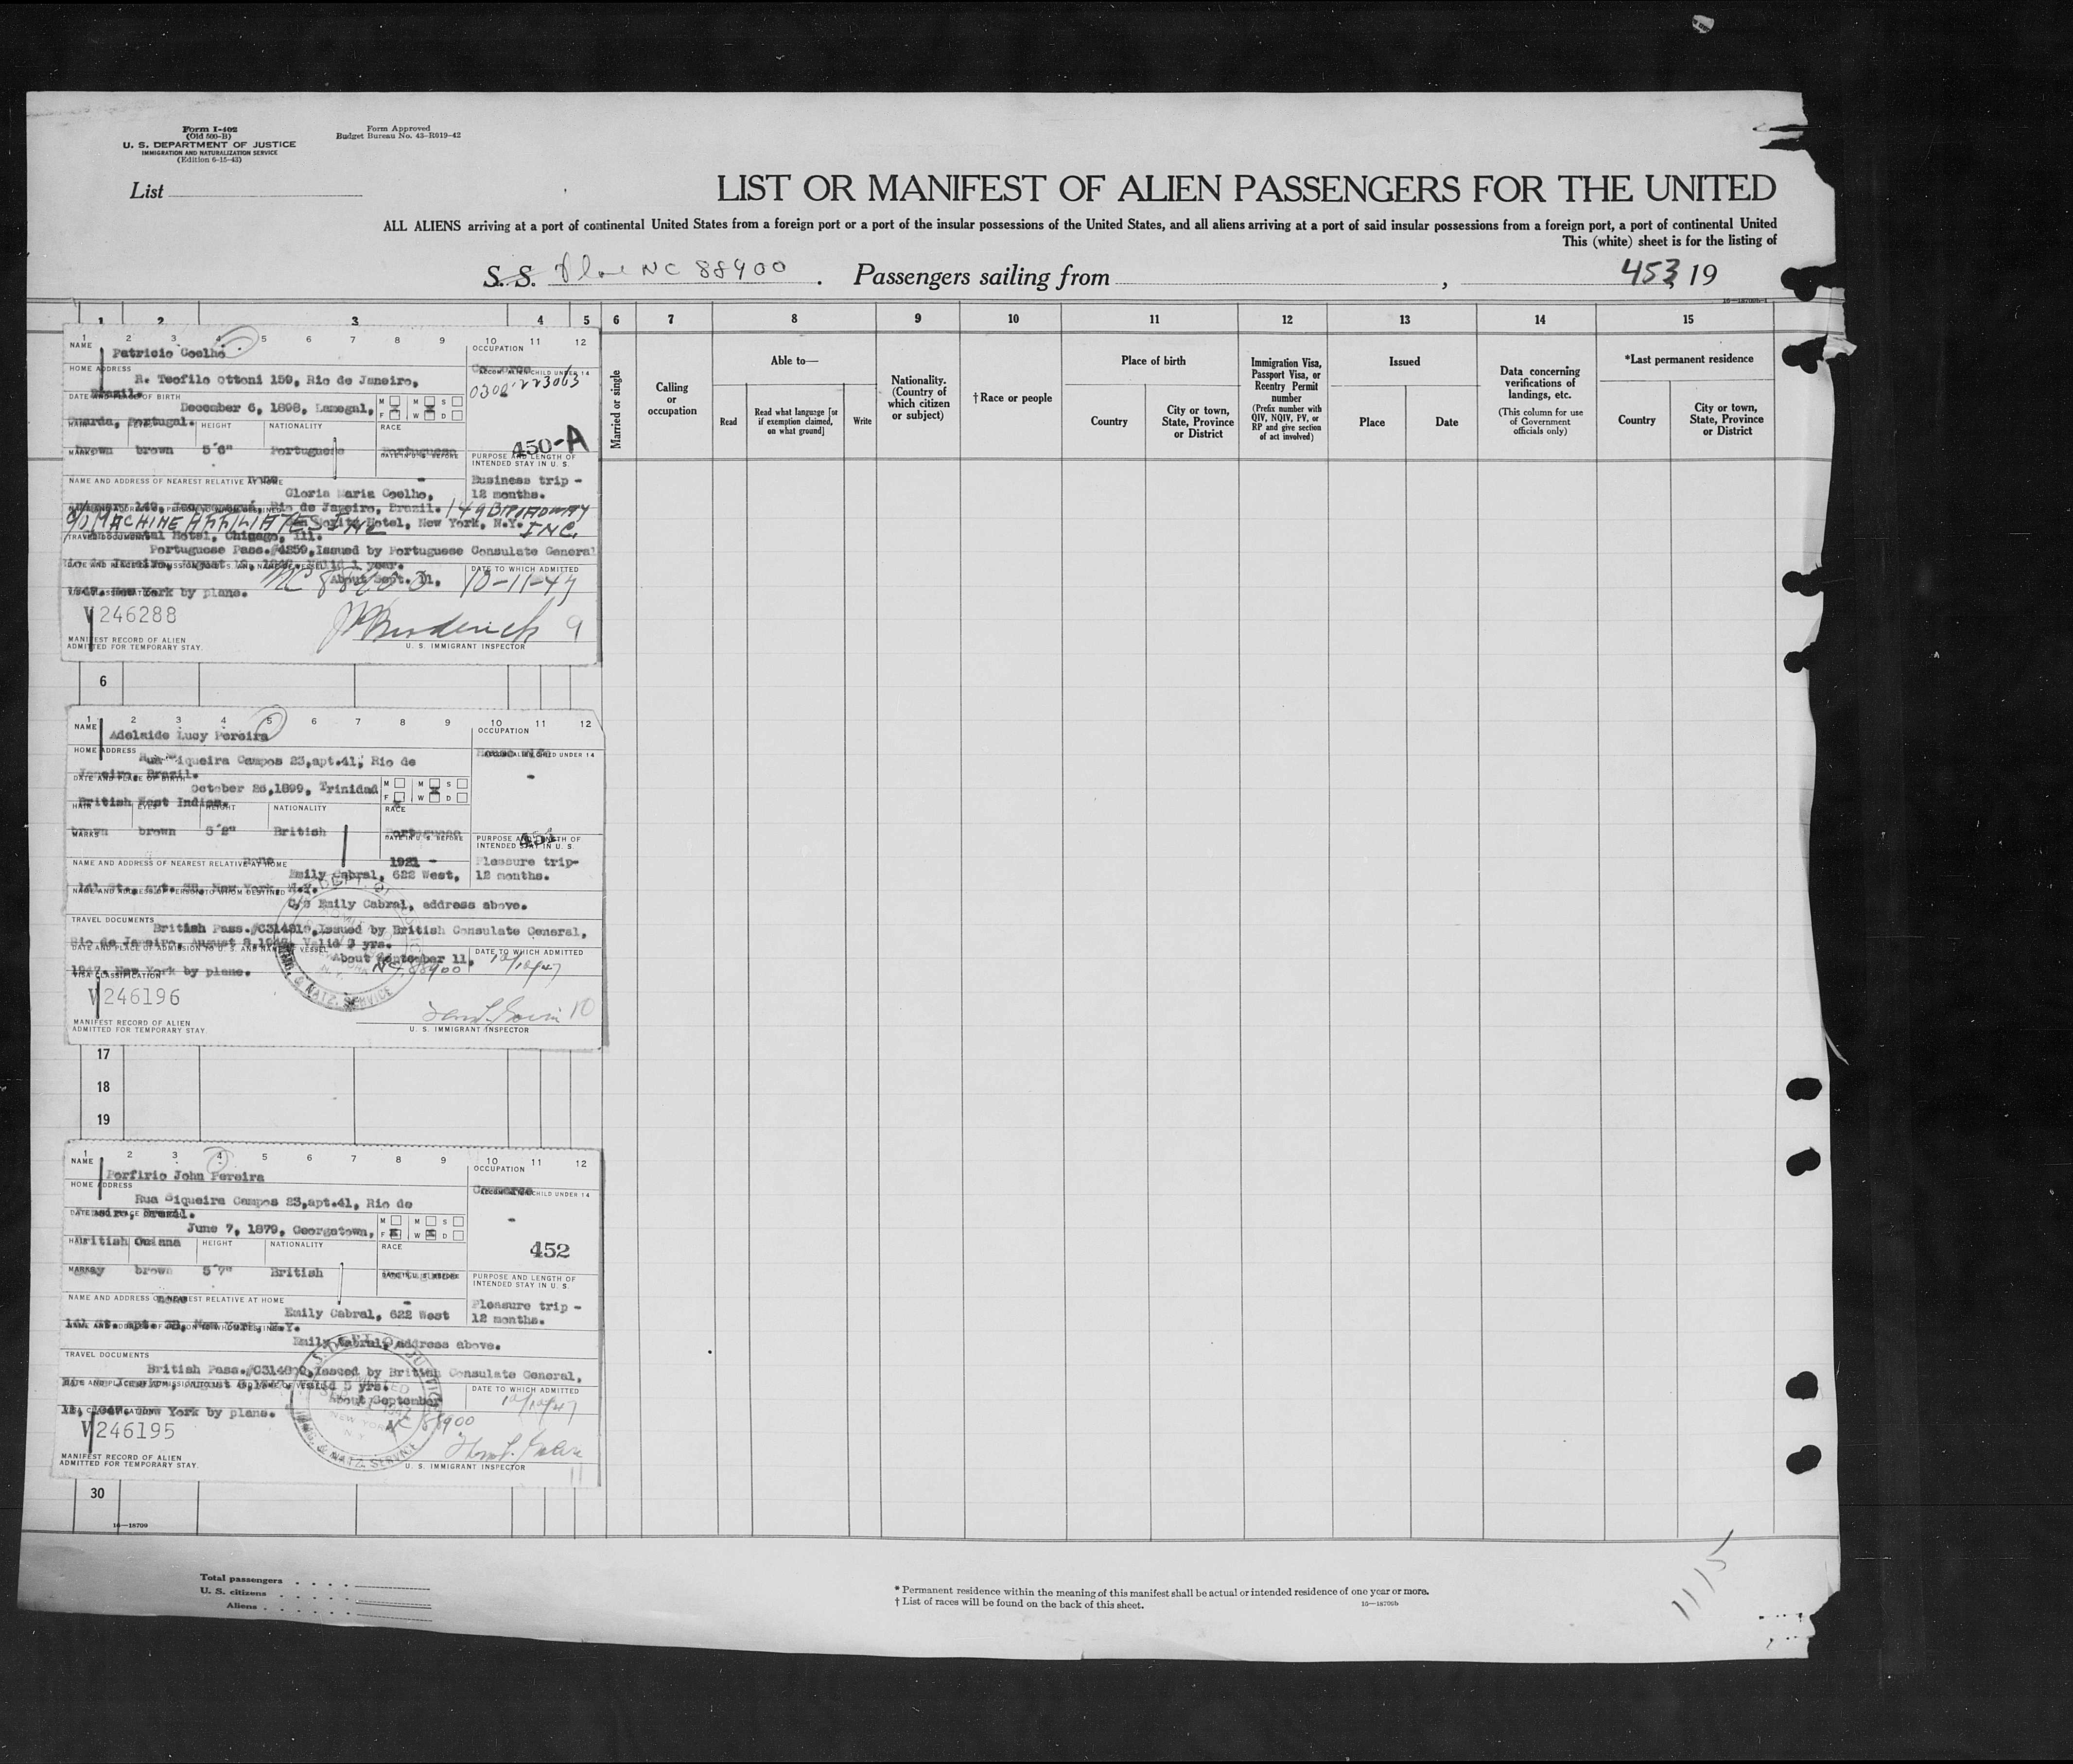 Form I-402
(Old 500-B)
U. S. DEPARTMENT OF JUSTICE
IMMIGRATION AND NATURALIZATION SERVICE
(Edition 6-15-43)
Form Approved
Budget Bureau No. 43-R019-42
List
LIST OR MANIFEST OF ALIEN PASSENGERS FOR THE UNITED
ALL ALIENS arriving at a port of continental United States from a foreign port or a part of the insular possessions of the United States, and all aliens arriving at a port of said insular possessions from a foreign port, a port of continental United
This (white) sheet is for the listing of
S. S. NC 88900 . Passengers sailing from , 453 , 19
1 2 3 4 5 6 7 8 9 10 11 12 13 14 15
Married or single
Calling or occupation
Able to—
Read
Read what language [or if exemption claimed, on what ground]
Write
Nationality. (Country of which citizen or subject)
†Race or people
Place of birth
Country
City or town, State, Province or District
Immigration Visa, Passport Visa, or Reentry Permit number
(Prefix number with QIV, NQIV, PV, or RP and give section of act involved)
Issued
Place
Date
Data concerning verifications of landings, etc.
(This column for use of Government officials only)
*Last permanent residence
Country
City or town, State, Province or District
1 2 3 4 5 6 7 8 9 10 11 12
NAME
Patricio Coelho
OCCUPATION
HOME ADDRESS
R. Teofilo Ottoni 159, Rio de Janeiro,
Brazil.
0300-223063
December 6, 1898, Lamegal,
M M S
F W D
Guarda, Portugal.
HEIGHT NATIONALITY RACE
450-A
brown brown 5'6" Portuguese Portuguese
PURPOSE AND LENGTH OF
INTENDED STAY IN U. S.
NAME AND ADDRESS OF NEAREST RELATIVE AT HOME
Business trip -
12 months.
Gloria Maria Coelho,
Rio de Janeiro, Brazil. 149 BROADWAY
C/O MACHINE AFFILIATES INC
Moritz Hotel, New York, N.Y. INC.
Hotel, Chicago, Ill.
Portuguese Pass.#4259, Issued by Portuguese Consulate General
DATE TO WHICH ADMITTED
About Sept. 11,
10-11-47
1947. New York by plane.
V 246288
9
MANIFEST RECORD OF ALIEN
ADMITTED FOR TEMPORARY STAY.
U. S. IMMIGRANT INSPECTOR
6
1 2 3 4 5 6 7 8 9 10 11 12
NAME
Adelaide Lucy Pereira
OCCUPATION
HOME ADDRESS
Rua Siqueira Campos 23,apt.41, Rio de
Janeiro, Brazil.
October 26,1899, Trinidad
M M S
F W D
British West Indies.
NATIONALITY RACE
brown brown 5'2" British Portuguese
MARKS
PURPOSE AND LENGTH OF
INTENDED STAY IN U. S.
NAME AND ADDRESS OF NEAREST RELATIVE AT HOME
none
1921 -
Pleasure trip-
12 months.
Emily Cabral, 622 West,
141 St., apt. 3B, New York, N.Y.
C/o Emily Cabral, address above.
TRAVEL DOCUMENTS
British Pass.#C314819, Issued by British Consulate General,
DATE TO WHICH ADMITTED
About September 11,
NC 88900
12/10/47
1947. New York by plane.
VISA CLASSIFICATION
V 246196
10
MANIFEST RECORD OF ALIEN
ADMITTED FOR TEMPORARY STAY.
U. S. IMMIGRANT INSPECTOR
17
18
19
1 2 3 4 5 6 7 8 9 10 11 12
NAME
Porfirio John Pereira
OCCUPATION
HOME ADDRESS
Commerce
Rua Siqueira Campos 23,apt.41, Rio de
June 7, 1879, Georgetown,
M M S
F W D
British Guiana
HEIGHT NATIONALITY RACE
452
gray brown 5'7" British
MARKS
PURPOSE AND LENGTH OF
INTENDED STAY IN U. S.
NAME AND ADDRESS OF NEAREST RELATIVE AT HOME
none
Pleasure trip -
12 months.
Emily Cabral, 622 West
141 St. apt. 3B, New York, N.Y.
Emily Cabral, address above.
TRAVEL DOCUMENTS
British Pass. Issued by British Consulate General,
DATE TO WHICH ADMITTED
About September
12/10/47
11, 1947. New York by plane.
NC 88900
V 246195
MANIFEST RECORD OF ALIEN
ADMITTED FOR TEMPORARY STAY.
U. S. IMMIGRANT INSPECTOR
11
30
16—18709
Total passengers
U. S. citizens
Aliens
* Permanent residence within the meaning of this manifest shall be actual or intended residence of one year or more.
† List of races will be found on the back of this sheet.
16—18709b
1115